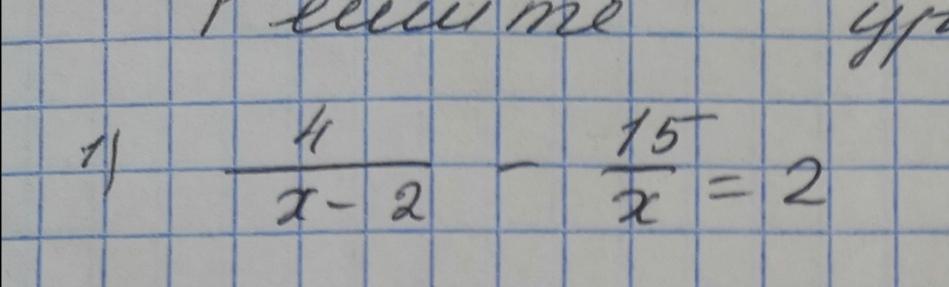 Решите ур
1) 4/(x-2) - 15/x = 2